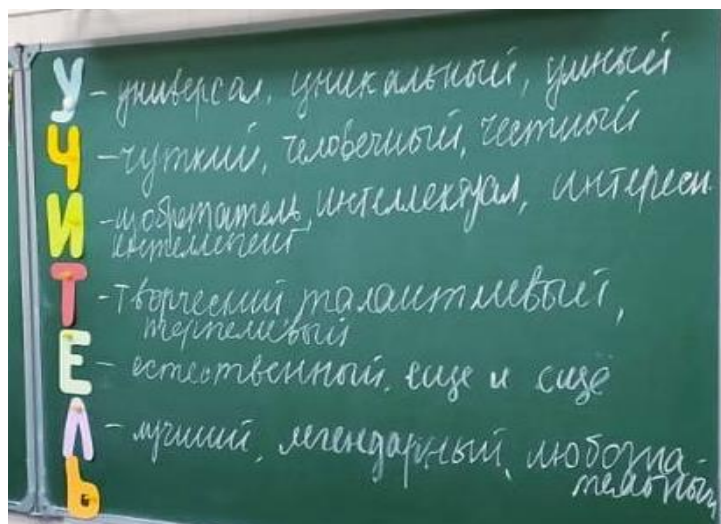 У - универсал, уникальный, умный
Ч - чуткий, человечный, честный
И - изобретатель, интеллектуал, интересн
интеллегент
Т - творческий, талантливый,
терпеливый
Е - естественный, еще и ещё
Л - лучший, легендарный, любозна-
тельный
Ь